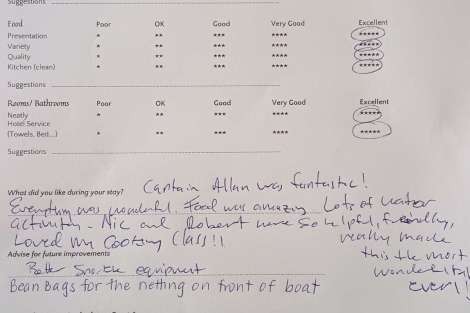 Suggestions
Food Poor OK Good Very Good Excellent
Presentation * ** *** **** *****
Variety * ** *** **** *****
Quality * ** *** **** *****
Kitchen (clean) * ** *** **** *****
Suggestions
Rooms/ Bathrooms Poor OK Good Very Good Excellent
Neatly * ** *** **** *****
Hotel Service
(Towels, Bed...) * ** *** **** *****
Suggestions
What did you like during your stay? Captain Allan was fantastic!
Everything was wonderful. Food was amazing Lots of water
activity - Nic and Robert were so helpful, friendly,
Loved my Cooking Class!! really made
Advise for future improvements this the most
Better Snorkle equipment
Bean Bags for the netting on front of boat ever!!